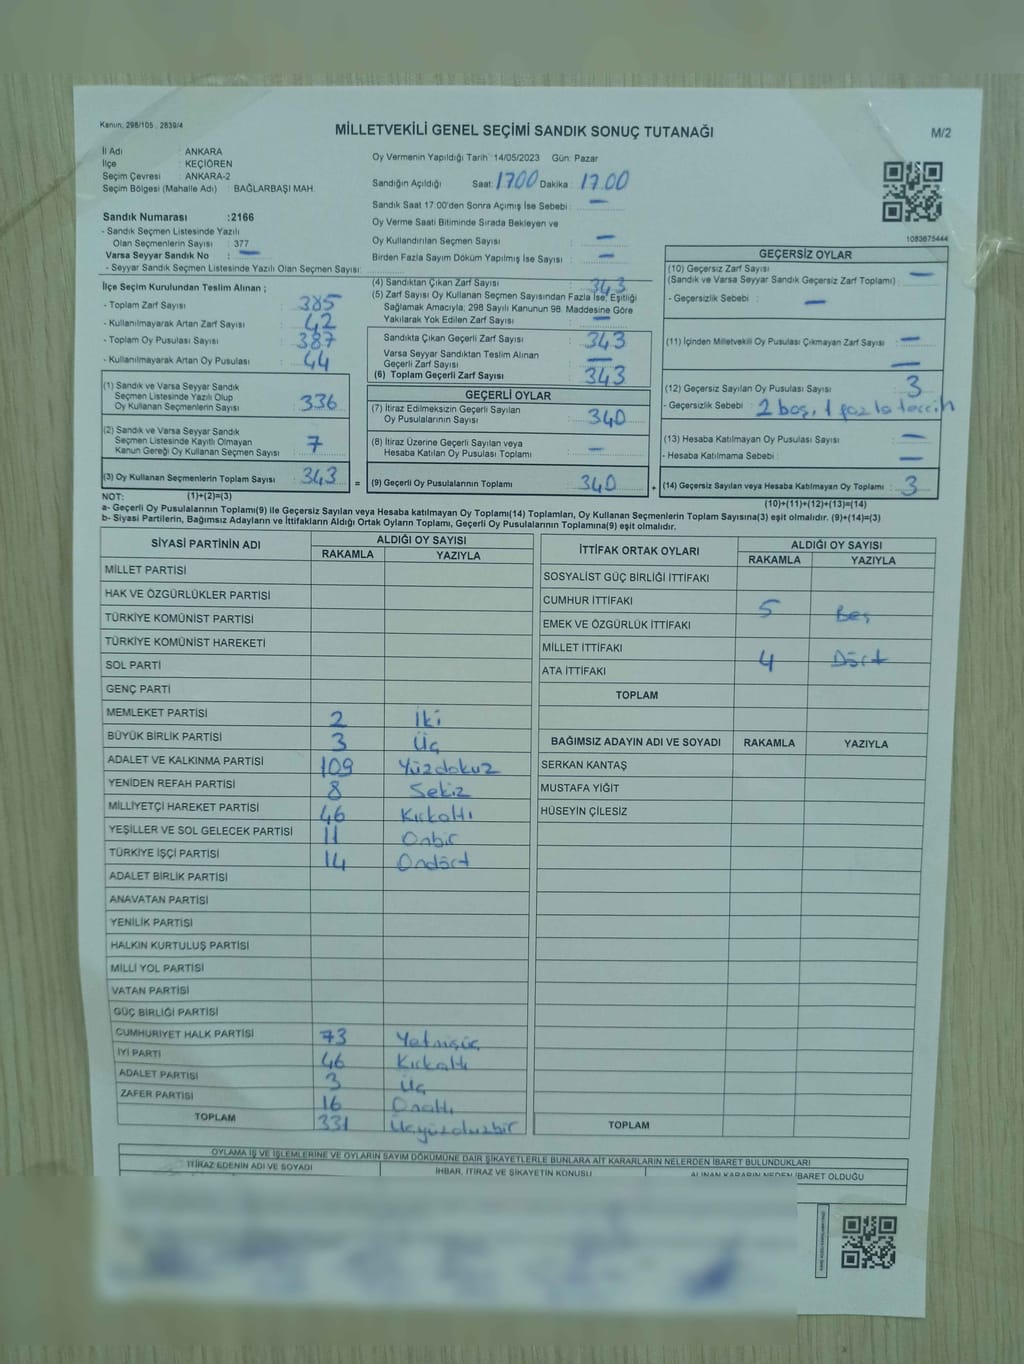 Kanun; 298/105 , 2839/4
MİLLETVEKİLİ GENEL SEÇİMİ SANDIK SONUÇ TUTANAĞI
M/2
İl Adı : ANKARA
İlçe : KEÇİÖREN
Seçim Çevresi : ANKARA-2
Seçim Bölgesi (Mahalle Adı) : BAĞLARBAŞI MAH.
Sandık Numarası :2166
- Sandık Seçmen Listesinde Yazılı
Olan Seçmenlerin Sayısı : 377
Varsa Seyyar Sandık No : —
- Seyyar Sandık Seçmen Listesinde Yazılı Olan Seçmen Sayısı:
Oy Vermenin Yapıldığı Tarih : 14/05/2023 Gün: Pazar
Sandığın Açıldığı Saat: 17.00 Dakika : 17.00
Sandık Saat 17:00'den Sonra Açımış İse Sebebi : —
Oy Verme Saati Bitiminde Sırada Bekleyen ve
Oy Kullandırılan Seçmen Sayısı : —
Birden Fazla Sayım Döküm Yapılmış İse Sayısı : —
1083675444
İlçe Seçim Kurulundan Teslim Alınan ;
- Toplam Zarf Sayısı : 385
- Kullanılmayarak Artan Zarf Sayısı : 42
- Toplam Oy Pusulası Sayısı : 387
- Kullanılmayarak Artan Oy Pusulası : 44
(1) Sandık ve Varsa Seyyar Sandık
Seçmen Listesinde Yazılı Olup
Oy Kullanan Seçmenlerin Sayısı : 336
(2) Sandık ve Varsa Seyyar Sandık
Seçmen Listesinde Kayıtlı Olmayan
Kanun Gereği Oy Kullanan Seçmen Sayısı : 7
(3) Oy Kullanan Seçmenlerin Toplam Sayısı : 343 =
(4) Sandıktan Çıkan Zarf Sayısı : 343
(5) Zarf Sayısı Oy Kullanan Seçmen Sayısından Fazla İse, Eşitliği
Sağlamak Amacıyla, 298 Sayılı Kanunun 98. Maddesine Göre
Yakılarak Yok Edilen Zarf Sayısı : —
Sandıkta Çıkan Geçerli Zarf Sayısı : 343
Varsa Seyyar Sandıktan Teslim Alınan
Geçerli Zarf Sayısı : —
(6) Toplam Geçerli Zarf Sayısı : 343
GEÇERLİ OYLAR
(7) İtiraz Edilmeksizin Geçerli Sayılan
Oy Pusulalarının Sayısı : 340
(8) İtiraz Üzerine Geçerli Sayılan veya
Hesaba Katılan Oy Pusulası Toplamı : —
(9) Geçerli Oy Pusulalarının Toplamı : 340 +
GEÇERSİZ OYLAR
(10) Geçersiz Zarf Sayısı
(Sandık ve Varsa Seyyar Sandık Geçersiz Zarf Toplamı) : —
- Geçersizlik Sebebi : —
(11) İçinden Milletvekili Oy Pusulası Çıkmayan Zarf Sayısı : —
—
(12) Geçersiz Sayılan Oy Pusulası Sayısı : 3
- Geçersizlik Sebebi : 2 boş, 1 fazla tercih
(13) Hesaba Katılmayan Oy Pusulası Sayısı : —
- Hesaba Katılmama Sebebi : —
(14) Geçersiz Sayılan veya Hesaba Katılmayan Oy Toplamı : 3
NOT: (1)+(2)=(3)
(10)+(11)+(12)+(13)=(14)
a- Geçerli Oy Pusulalarının Toplamı(9) ile Geçersiz Sayılan veya Hesaba katılmayan Oy Toplamı(14) Toplamları, Oy Kullanan Seçmenlerin Toplam Sayısına(3) eşit olmalıdır. (9)+(14)=(3)
b- Siyasi Partilerin, Bağımsız Adayların ve İttifakların Aldığı Ortak Oyların Toplamı, Geçerli Oy Pusulalarının Toplamına(9) eşit olmalıdır.
SİYASİ PARTİNİN ADI ALDIĞI OY SAYISI
RAKAMLA YAZIYLA
MİLLET PARTİSİ
HAK VE ÖZGÜRLÜKLER PARTİSİ
TÜRKİYE KOMÜNİST PARTİSİ
TÜRKİYE KOMÜNİST HAREKETİ
SOL PARTİ
GENÇ PARTİ
MEMLEKET PARTİSİ 2 İki
BÜYÜK BİRLİK PARTİSİ 3 Üç
ADALET VE KALKINMA PARTİSİ 109 Yüzdokuz
YENİDEN REFAH PARTİSİ 8 Sekiz
MİLLİYETÇİ HAREKET PARTİSİ 46 Kırkaltı
YEŞİLLER VE SOL GELECEK PARTİSİ 11 Onbir
TÜRKİYE İŞÇİ PARTİSİ 14 Ondört
ADALET BİRLİK PARTİSİ
ANAVATAN PARTİSİ
YENİLİK PARTİSİ
HALKIN KURTULUŞ PARTİSİ
MİLLİ YOL PARTİSİ
VATAN PARTİSİ
GÜÇ BİRLİĞİ PARTİSİ
CUMHURİYET HALK PARTİSİ 73 Yetmişüç
İYİ PARTİ 46 Kırkaltı
ADALET PARTİSİ 3 Üç
ZAFER PARTİSİ 16 Onaltı
TOPLAM 331 Üçyüzotuzbir
İTTİFAK ORTAK OYLARI ALDIĞI OY SAYISI
RAKAMLA YAZIYLA
SOSYALİST GÜÇ BİRLİĞİ İTTİFAKI
CUMHUR İTTİFAKI 5 Beş
EMEK VE ÖZGÜRLÜK İTTİFAKI
MİLLET İTTİFAKI 4 Dört
ATA İTTİFAKI
TOPLAM
BAĞIMSIZ ADAYIN ADI VE SOYADI RAKAMLA YAZIYLA
SERKAN KANTAŞ
MUSTAFA YİĞİT
HÜSEYİN ÇİLESİZ
TOPLAM
OYLAMA İŞ VE İŞLEMLERİNE VE OYLARIN SAYIM DÖKÜMÜNE DAİR ŞİKAYETLERLE BUNLARA AİT KARARLARIN NELERDEN İBARET BULUNDUKLARI
İTİRAZ EDENİN ADI VE SOYADI İHBAR, İTİRAZ VE ŞİKAYETİN KONUSU ALINAN KARARIN NEDEN İBARET OLDUĞU